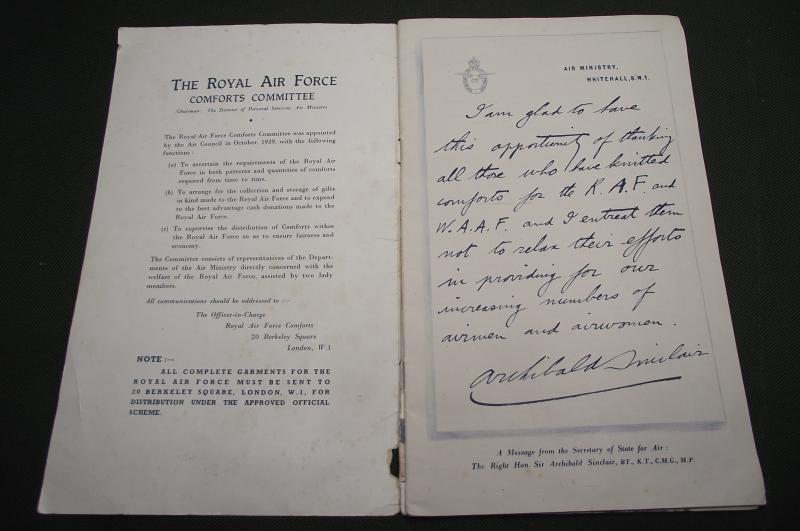 THE ROYAL AIR FORCE
COMFORTS COMMITTEE
Chairman: The Director of Personal Services, Air Ministry
The Royal Air Force Comforts Committee was appointed
by the Air Council in October, 1939, with the following
functions :
(a) To ascertain the requirements of the Royal Air
Force in both patterns and quantities of comforts
required from time to time.
(b) To arrange for the collection and storage of gifts
in kind made to the Royal Air Force and to expend
to the best advantage cash donations made to the
Royal Air Force.
(c) To supervise the distribution of Comforts within
the Royal Air Force so as to ensure fairness and
economy.
The Committee consists of representatives of the Depart-
ments of the Air Ministry directly concerned with the
welfare of the Royal Air Force, assisted by two lady
members.
All communications should be addressed to :—
The Officer-in-Charge
Royal Air Force Comforts
20 Berkeley Square
London, W.1
NOTE :—
ALL COMPLETE GARMENTS FOR THE
ROYAL AIR FORCE MUST BE SENT TO
20 BERKELEY SQUARE, LONDON, W.1, FOR
DISTRIBUTION UNDER THE APPROVED OFFICIAL
SCHEME.
AIR MINISTRY,
WHITEHALL, S.W.1.
I am glad to have
this opportunity of thanking
all those who have knitted
comforts for the R.A.F. and
W.A.A.F. and I entreat them
not to relax their efforts
in providing for our
increasing numbers of
airmen and airwomen.
Archibald Sinclair
A Message from the Secretary of State for Air :
The Right Hon. Sir Archibald Sinclair, BT., K.T., C.M.G., M.P.